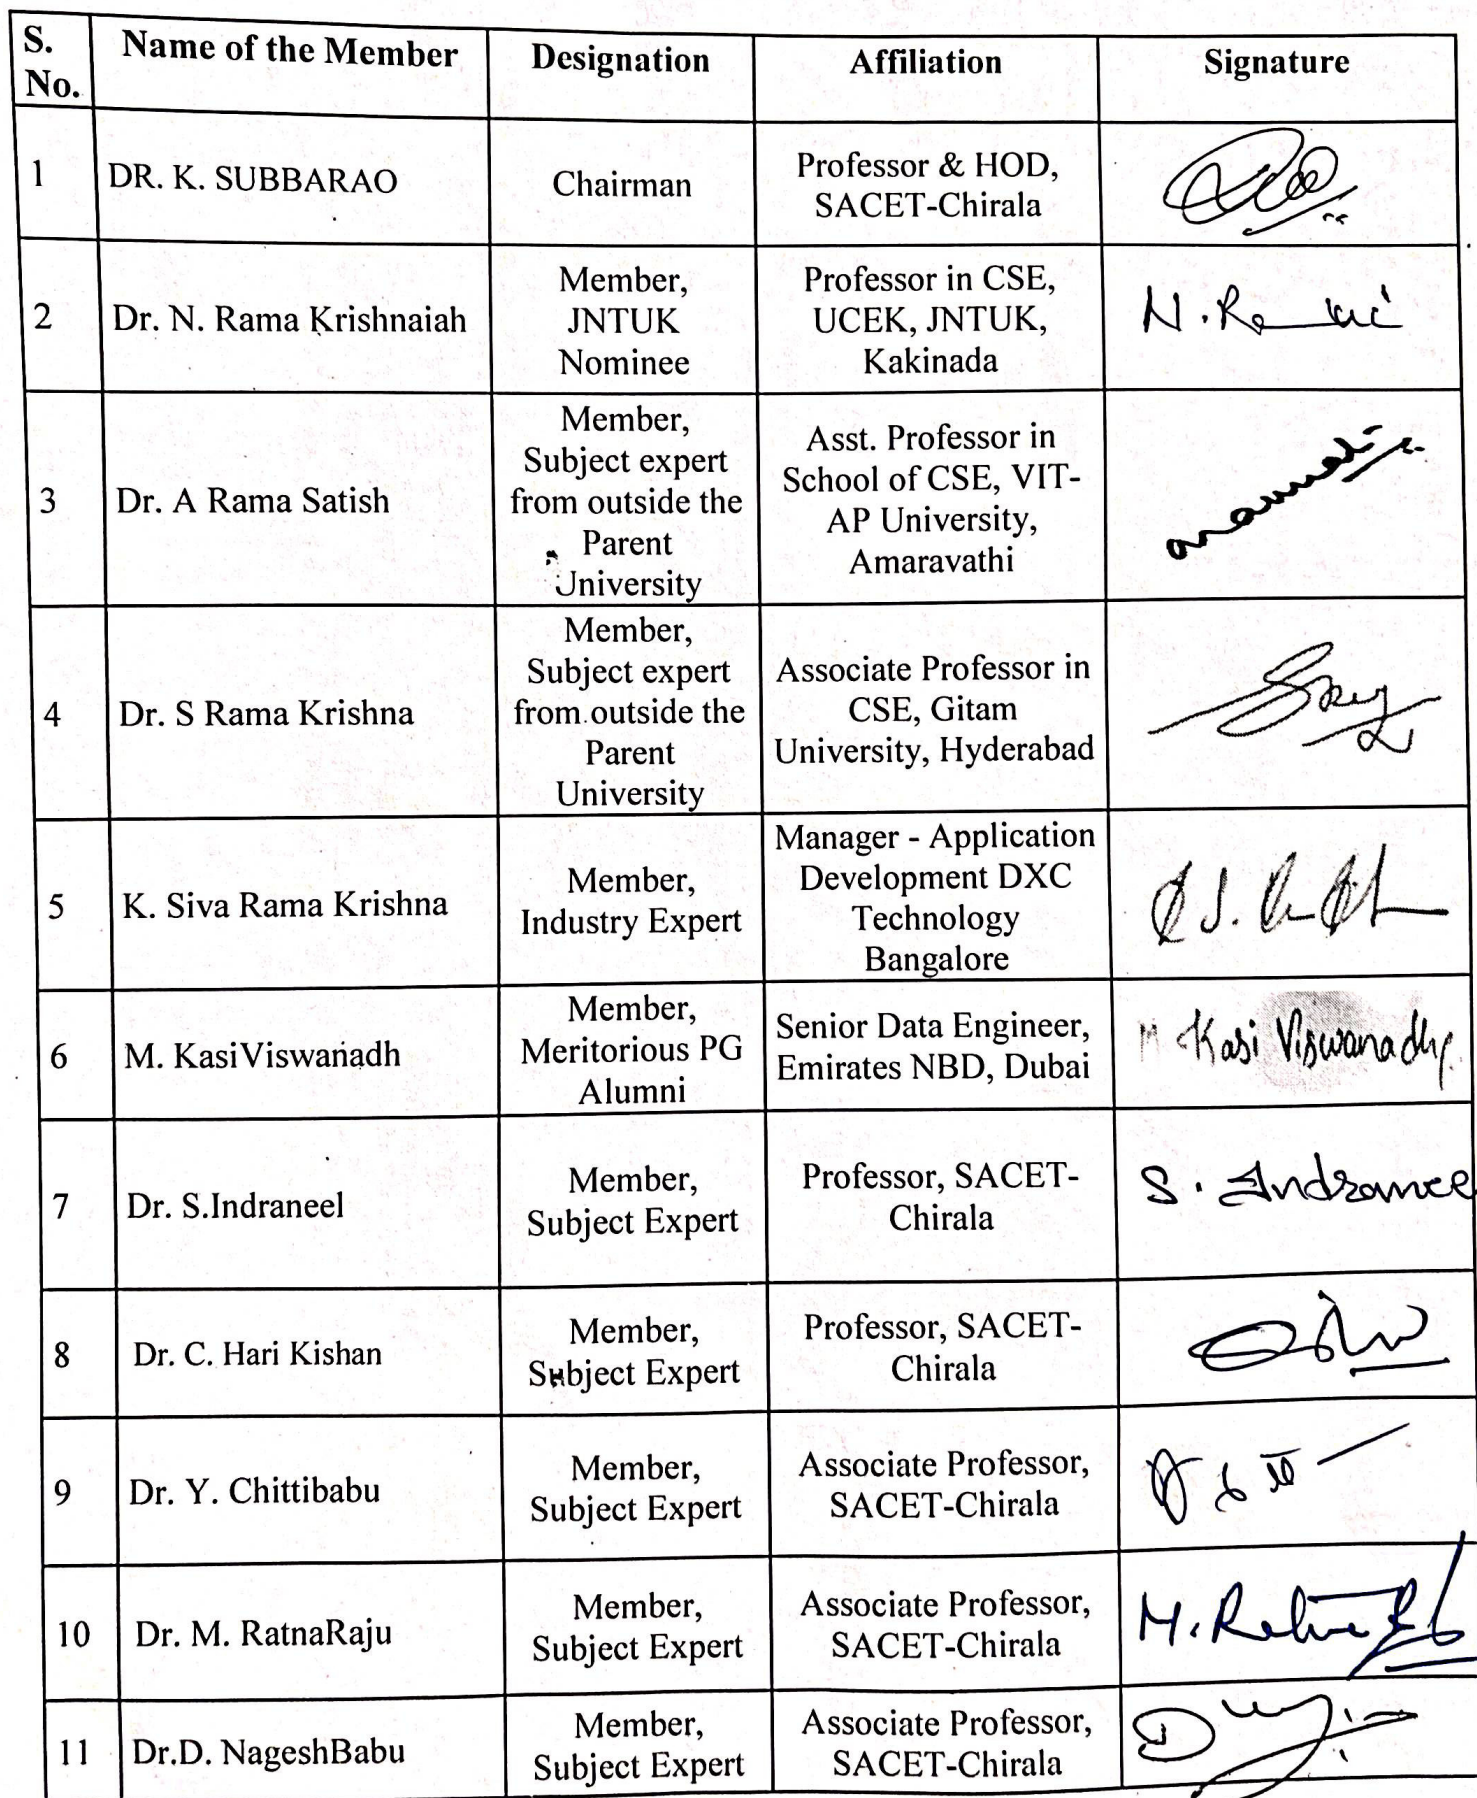 S. No. Name of the Member Designation Affiliation Signature
1 DR. K. SUBBARAO Chairman Professor & HOD,
SACET-Chirala
2 Dr. N. Rama Krishnaiah Member,
JNTUK
Nominee
Professor in CSE,
UCEK, JNTUK,
Kakinada
3 Dr. A Rama Satish Member,
Subject expert
from outside the
Parent
University
Asst. Professor in
School of CSE, VIT-
AP University,
Amaravathi
4 Dr. S Rama Krishna Member,
Subject expert
from outside the
Parent
University
Associate Professor in
CSE, Gitam
University, Hyderabad
5 K. Siva Rama Krishna Member,
Industry Expert
Manager - Application
Development DXC
Technology
Bangalore
6 M. KasiViswanadh Member,
Meritorious PG
Alumni
Senior Data Engineer,
Emirates NBD, Dubai
M Kasi Viswanadh
7 Dr. S.Indraneel Member,
Subject Expert
Professor, SACET-
Chirala
S. Indraneel
8 Dr. C. Hari Kishan Member,
Subject Expert
Professor, SACET-
Chirala
9 Dr. Y. Chittibabu Member,
Subject Expert
Associate Professor,
SACET-Chirala
10 Dr. M. RatnaRaju Member,
Subject Expert
Associate Professor,
SACET-Chirala
11 Dr.D. NageshBabu Member,
Subject Expert
Associate Professor,
SACET-Chirala